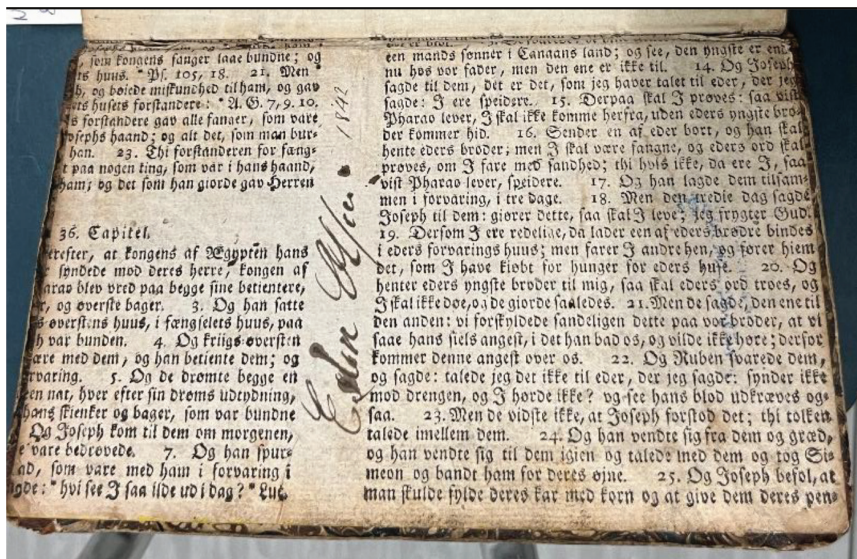 som kongens fanger laae bundne; og
huus. * Ps. 105, 18. 21. Men
og boiede miskundhed til ham, og gav
husets forstandere: * A. G. 7, 9. 10.
forstandere gav alle fanger, som vare
Josephs haand; og alt det, som man
han. 23. Thi forstanderen for fæng-
paa nogen ting, som var i hans haand,
ham; og det som han giorde gav Herren
36. Capitel.
derefter, at kongens af Ægypten hans
syndede mod deres herre, kongen af
blev vred paa begge sine betientere,
og øverste bager. 3. Og han satte
øverstens huus, i fængselets huus, paa
var bunden. 4. Og kriigs-øversten
være med dem, og han betiente dem; og
forvaring. 5. Og de drømte begge en
een nat, hver efter sin drøms udtydning,
hans skienker og bager, som var bundne
Og Joseph kom til dem om morgenen,
vare bedrøvede. 7. Og han spur-
som vare med ham i forvaring i
sagde: * hvi see I saa ilde ud i dag? * Luc.
1842
een mands sønner i Canaans land; og see, den yngste er end
nu hos vor fader, men den ene er ikke til. 14. Og Joseph
sagde til dem, det er det, som jeg haver talet til eder, der jeg
sagde: I ere speidere. 15. Derpaa skal I prøves: saa vist
Pharao lever, I skal ikke komme herfra, uden eders yngste bro-
der kommer hid. 16. Sender en af eder bort, og han skal
hente eders broder; men I skal være fangne, og eders ord skal
prøves, om I fare med sandhed; thi hvis ikke, da ere I, saa
vist Pharao lever, speidere. 17. Og han lagde dem tilsam-
men i forvaring, i tre dage. 18. Men den tredie dag sagde
Joseph til dem: giører dette, saa skal I leve; jeg frygter Gud.
19. Dersom I ere redelige, da lader een af eders brødre bindes
i eders forvarings huus; men farer I andre hen, og fører hiem
det, som I have kiøbt for hunger for eders huse. 20. Og
henter eders yngste broder til mig, saa skal eders ord troes, og
I skal ikke døe, og de giorde saaledes. 21. Men de sagde, den ene til
den anden: vi forskyldede sandeligen dette paa vor broder, at vi
saae hans siels angest, i det han bad os, og vilde ikke høre; derfor
kommer denne angest over os. 22. Og Ruben svarede dem,
og sagde: talede jeg det ikke til eder, der jeg sagde: synder ikke
mod drengen, og I hørde ikke? og see hans blod udkræves og-
saa. 23. Men de vidste ikke, at Joseph forstod det; thi tolken
talede imellem dem. 24. Og han vendte sig fra dem og græd,
og han vendte sig til dem igien og talede med dem og tog Si-
meon og bandt ham for deres øjne. 25. Og Joseph befol, at
man skulde fylde deres kar med korn og at give dem deres pen-